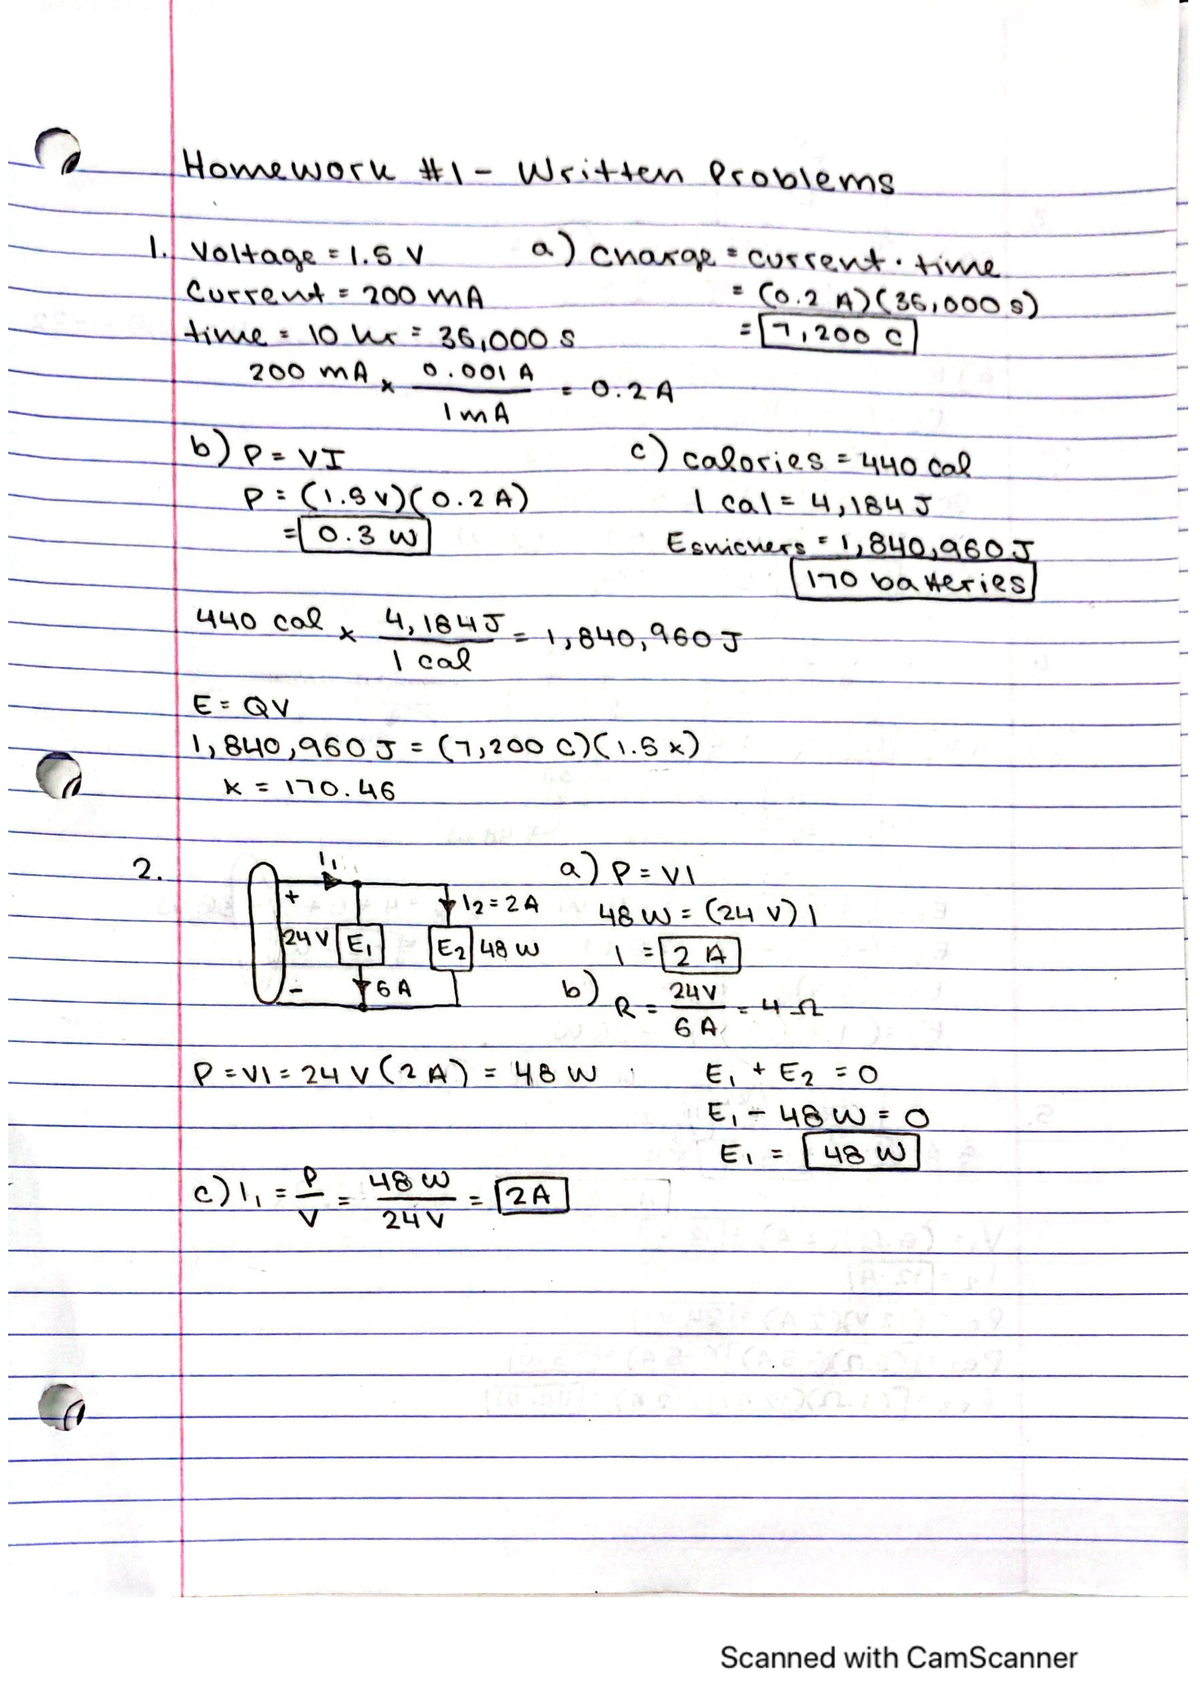 Homework #1 - Written Problems
1. Voltage = 1.5 V
Current = 200 mA
time = 10 hr = 36,000 s
200 mA x 0.001 A / 1 mA = 0.2 A
a) Charge = current · time
= (0.2 A)(36,000 s)
= 7,200 C
b) P = VI
P = (1.5 V)(0.2 A)
= 0.3 W
c) calories = 440 cal
1 cal = 4,184 J
Esnickers = 1,840,960 J
170 batteries
440 cal x 4,184 J / 1 cal = 1,840,960 J
E = QV
1,840,960 J = (7,200 C)(1.5 x)
x = 170.46
2.
I₁
+
24 V
E₁
6 A
-
I₂ = 2 A
E₂ 48 W
a) P = VI
48 W = (24 V) I
I = 2 A
b) R = 24V / 6 A = 4 Ω
P = VI = 24 V (2 A) = 48 W
E₁ + E₂ = 0
E₁ - 48 W = 0
E₁ = 48 W
c) I₁ = P / V = 48 W / 24 V = 2 A
Scanned with CamScanner